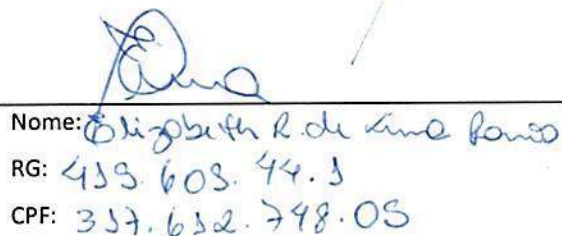 Nome: Elizabeth R. de Lima
RG: 419.609.44.1
CPF: 317.612.748.05